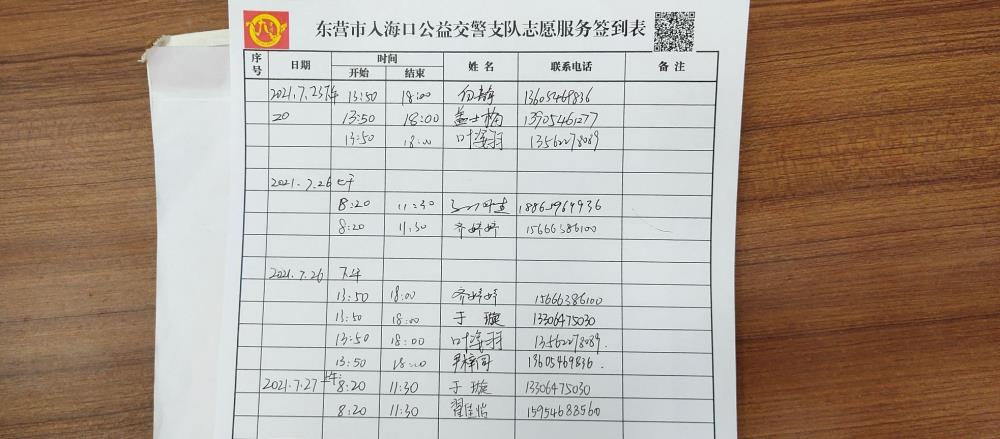 东营市入海口公益交警支队志愿服务签到表
序号 日期 时间 开始 结束 姓名 联系电话 备注
2021.7.23下午 13:50 18:00 向静 13605469836
20 13:50 18:00 13905461277
13:50 18:00 叶姿羽 13562278089
2021.7.26 上午
8:20 11:30 18865964936
8:20 11:30 齐婷婷 15666386100
2021.7.26 下午
13:50 18:00 齐婷婷 15666386100
13:50 18:00 于璇 13306475030
13:50 18:00 叶姿羽 13562278089.
13:50 18:00 13605469836.
2021.7.27 上午: 8:20 11:30 于璇 13306475030
8:20 11:30 翟佳怡 15954683560